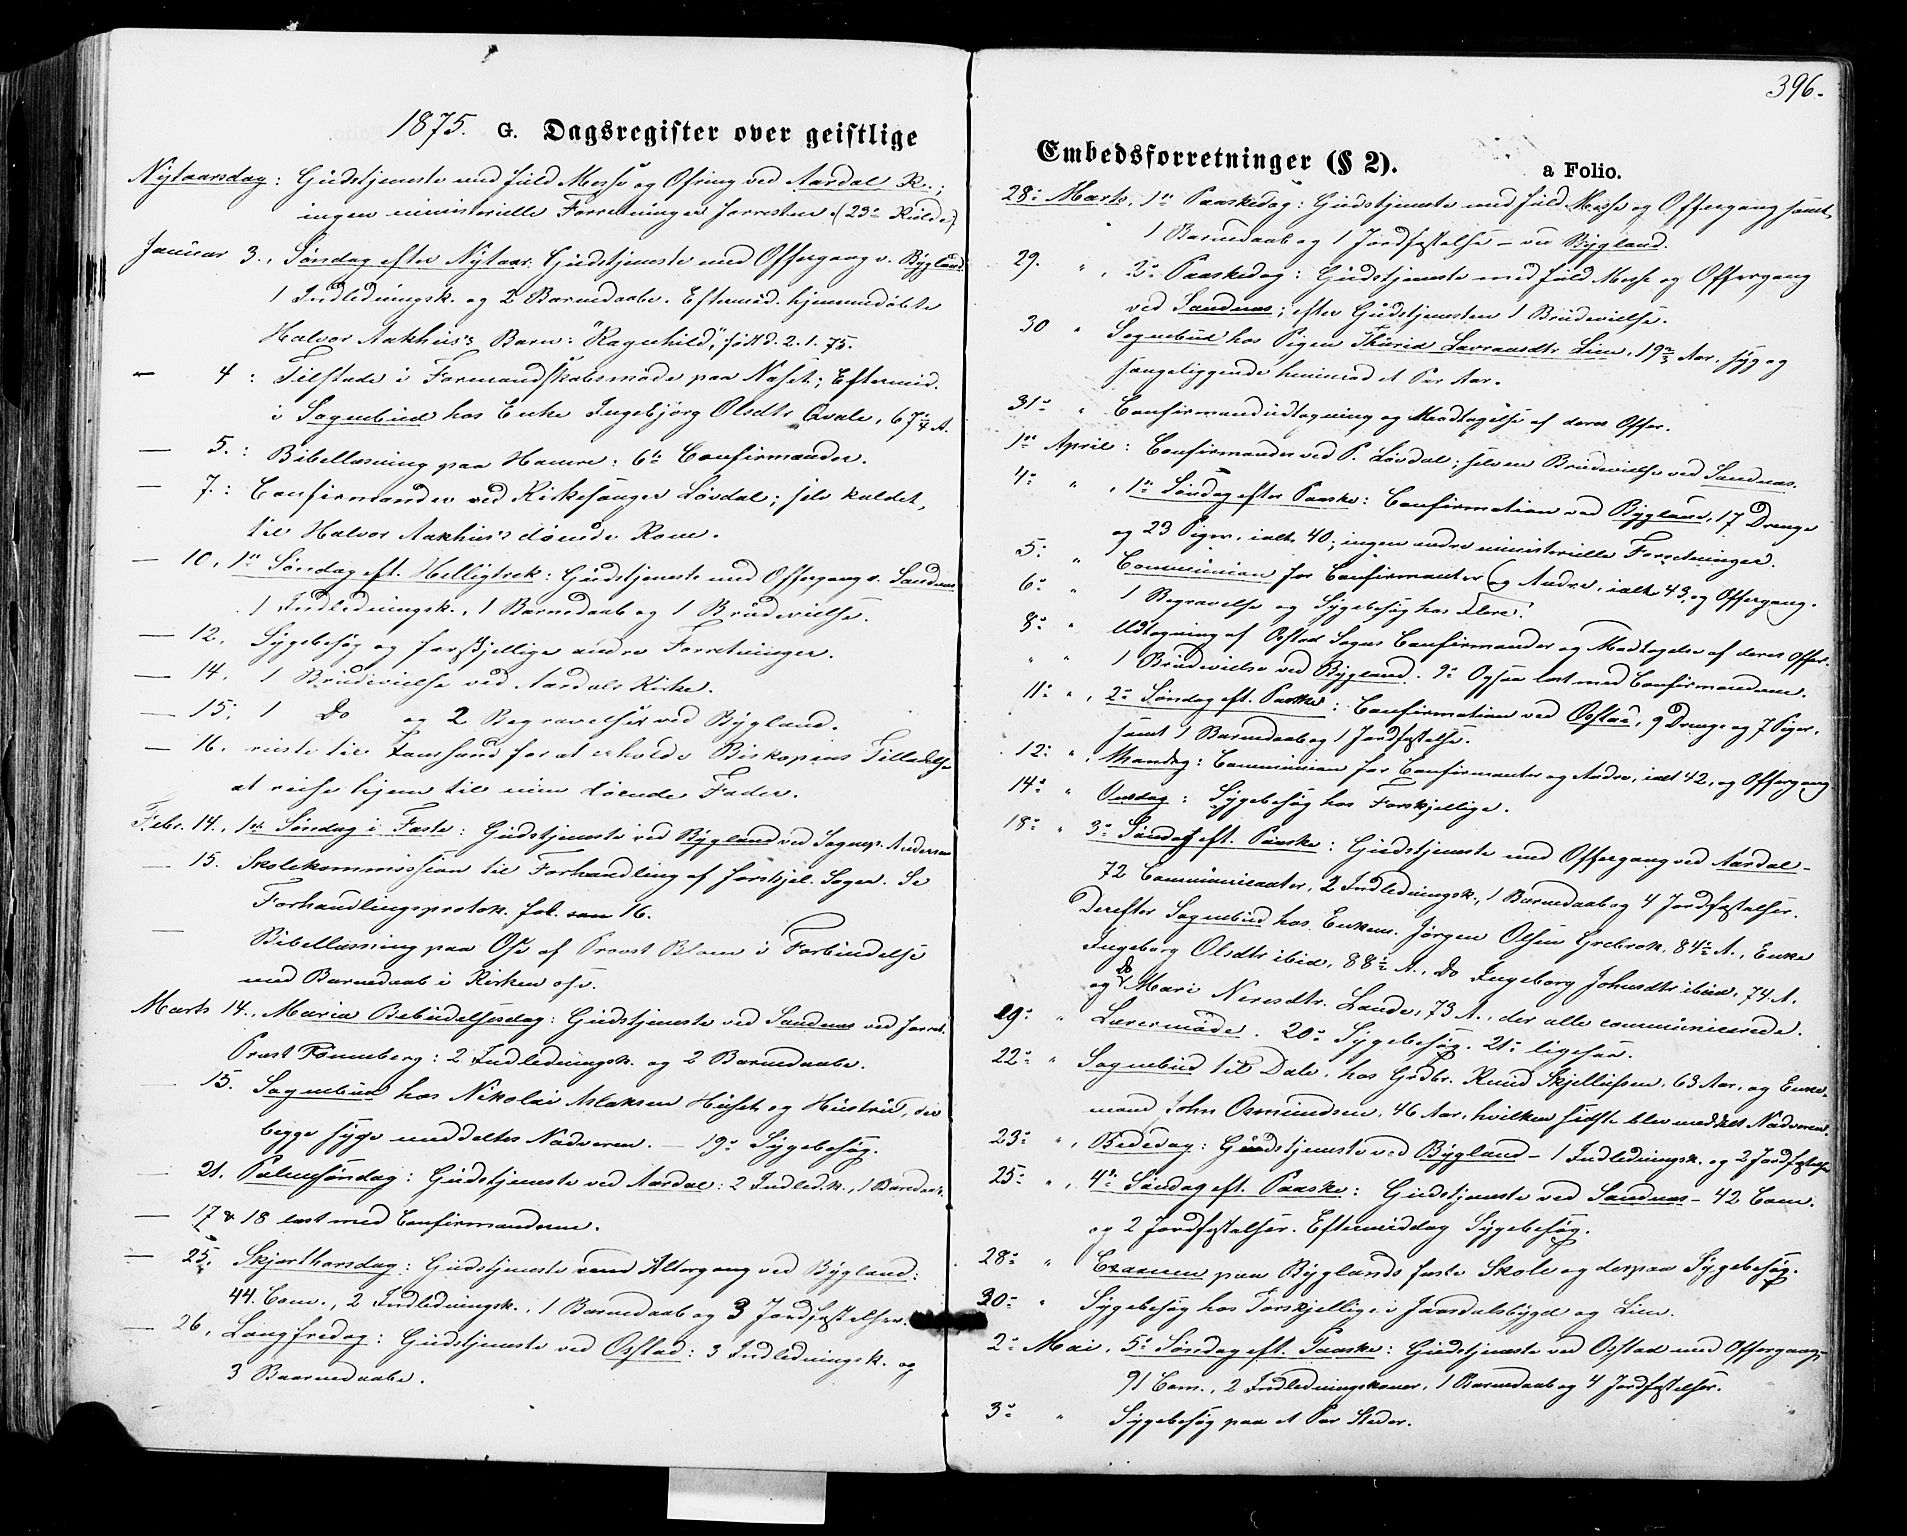 1875. G. Dagsregister over geistlige
Nytaarsdag: Gudstjeneste med fuld Messe og Ofring ved Aardal K.;
ingen ministerielle Forretninger forresten (23° Kulde)
Januar 3., Søndag efter Nytaar. Gudstjeneste med Offergang v. Bygland
1 Indledningsk. og 2 Barnedaabe. Eftermid. hjemmedøbte
Halvor Aakhus's Barn: "Ragnhild", født d. 2. 1. 75.
4: Tilstede i Formandskabsmøde paa Næset; Eftermid.
i Sognebud hos Enke Ingebjørg Olsdtr Qvale, 67 A.
— 5.: Bibellæsning paa Hamre: 6 Confirmander.
— 7.: Confirmander ved Kirkesanger Løvdal; selv kaldet,
til Halvor Aakhus's døende Kone.
— 10., 1ste Søndag eft. Helligtrek: Gudstjeneste med Offergang v. Sandnæs
1 Indledningsk., 1 Barnedaab og 1 Brudevielse.
— 12. Sygebesøg og forskjellige andre Forretninger.
— 14. 1 Brudevielse ved Aardals Kirke.
— 15; 1 Do og 2 Begravelser ved Bygland.
— 16. reiste til for at erholde Biskopens Tilladelse
at reise hjem til min døende Fader.
Febr. 14., 1ste Søndag i Faste: Gudstjeneste ved Bygland ved Sognep. Andersen
— 15. Skolekommission til Forhandling af forskjel. Sager. Se
Forhandlingsprotok. fol. 16.
— Bibellæsning paa Ose af Provst Blom i Forbindelse
med Barnedaab i Kirken ose.
Marts 14., Maria Bebudelsesdag: Gudstjeneste ved Sandnæs ved
Prost Fonneberg: 2 Indledningsk. og 2 Barnedaabe.
— 15. Sognebud hos Nikolai Aslaksen Huset og Hustru, der
begge syge meddeltes Nadveren. — 19 Sygebesøg.
— 21. Palmesøndag: Gudstjeneste ved Aardal: 2 Indled.k., 1 Barnedaab.
— 17 & 18 læst med Confirmanderne.
— 25. Skjærthorsdag: Gudstjeneste med Altergang ved Bygland:
44. Com., 2 Indledningsk., 1 Barnedaab og 3 Jordfæstelser.
— 26. Langfredag: Gudstjeneste ved Ostad: 3 Indledningsk. og
3 Baarnedaabe.
396.
Embedsforretninger (§ 2). a Folio.
28: Marts, 1ste Paaskedag: Gudstjeneste med fuld Messe og Offergang samt
1 Barnedaab og 1 Jordfæstelse – ved Bygland.
29. " , 2 Paaskedag: Gudstjeneste med fuld Messe og Offergang
ved Sandnæs; efter Gudstjenesten 1 Brudevielse.
30 " Sognebud hos Pigen Thurid Lavrandsdtr Lien, 19 Aar, syg og
sengeliggende henimod et Par Aar.
31 " Confirmandudtagning og Modtagelse af deres Offer.
1ste April: Confirmander ved P. Løvdal; selv en Brudevielse ved Sandnæs.
4: " , 1ste Søndag efter Paaske: Confirmation ved Bygland, 17 Drenge
og 23 Piger, ialt 40; ingen andre ministerielle Forretninger.
5: " Communion for Confirmanter (og Andre, ialt 43, og Offergang.
6: " 1 Begravelse og Sygebesøg hos Flere.
8: " Udtagning af Ostad Sogns Confirmander og Modtagelse af deres Offer.
" " 1 Brudevielse ved Bygland. 9: Ogsaa læst med Confirmanderne.
11: " , 2: Søndag eft. Paaske: Confirmation ved Ostad, 9 Drenge og 7 Piger,
samt 1 Barnedaab og 1 Jordfæstelse.
12: " , Mandag: Communion for Confirmanter og Andre, ialt 42, og Offergang
14: " Onsdag: Sygebesøg hos Forskjellige.
18: " 3: Søndag eft. Paaske: Gudstjeneste med Offergang ved Aardal –
72 Communicanter, 2 Indledningsk., 1 Barnedaab og 4 Jordfæstelser.
Derefter Sognebud hos Enkem. Jørgen Olsen Grebrok, 84 A., Enke
Ingeborg Olsdtr ibid, 88 A., Do Ingeborg Johnsdtr ibid, 74 A.
og Do Mari Neresdtr. Lande, 73 A., der alle communicerede.
19: " Lærermøde. 20: Sygebesøg. 21: ligesaa.
22: " Sognebud til Dale, hos Grdbr. Knud Skjelluksen, 63 Aar, og Enke-
mand John Osmundsen, 46 Aar, hvilken sidste blev meddelt Nadveren.
23: " , Bededag: Gudstjeneste ved Bygland – 1 Indledningsk. og 2 Jordfæstelser
25: " , 4: Søndag eft. Paaske: Gudstjeneste ved Sandnæs – 42 Com.
og 2 Jordfæstelser. Eftermiddag Sygebesøg.
28: " Examen paa Byglands faste Skole og derpaa Sygebesøg.
30: " Sygebesøg hos Forskjellige i Jaardalsbygd og Lien.
2: Mai, 5: Søndag eft. Paaske: Gudstjeneste ved Ostad med Offergang,
91 Com., 2 Indledningskoner, 1 Barnedaab og 4 Jordfæstelser.
3: " Sygebesøg paa et Par Steder.